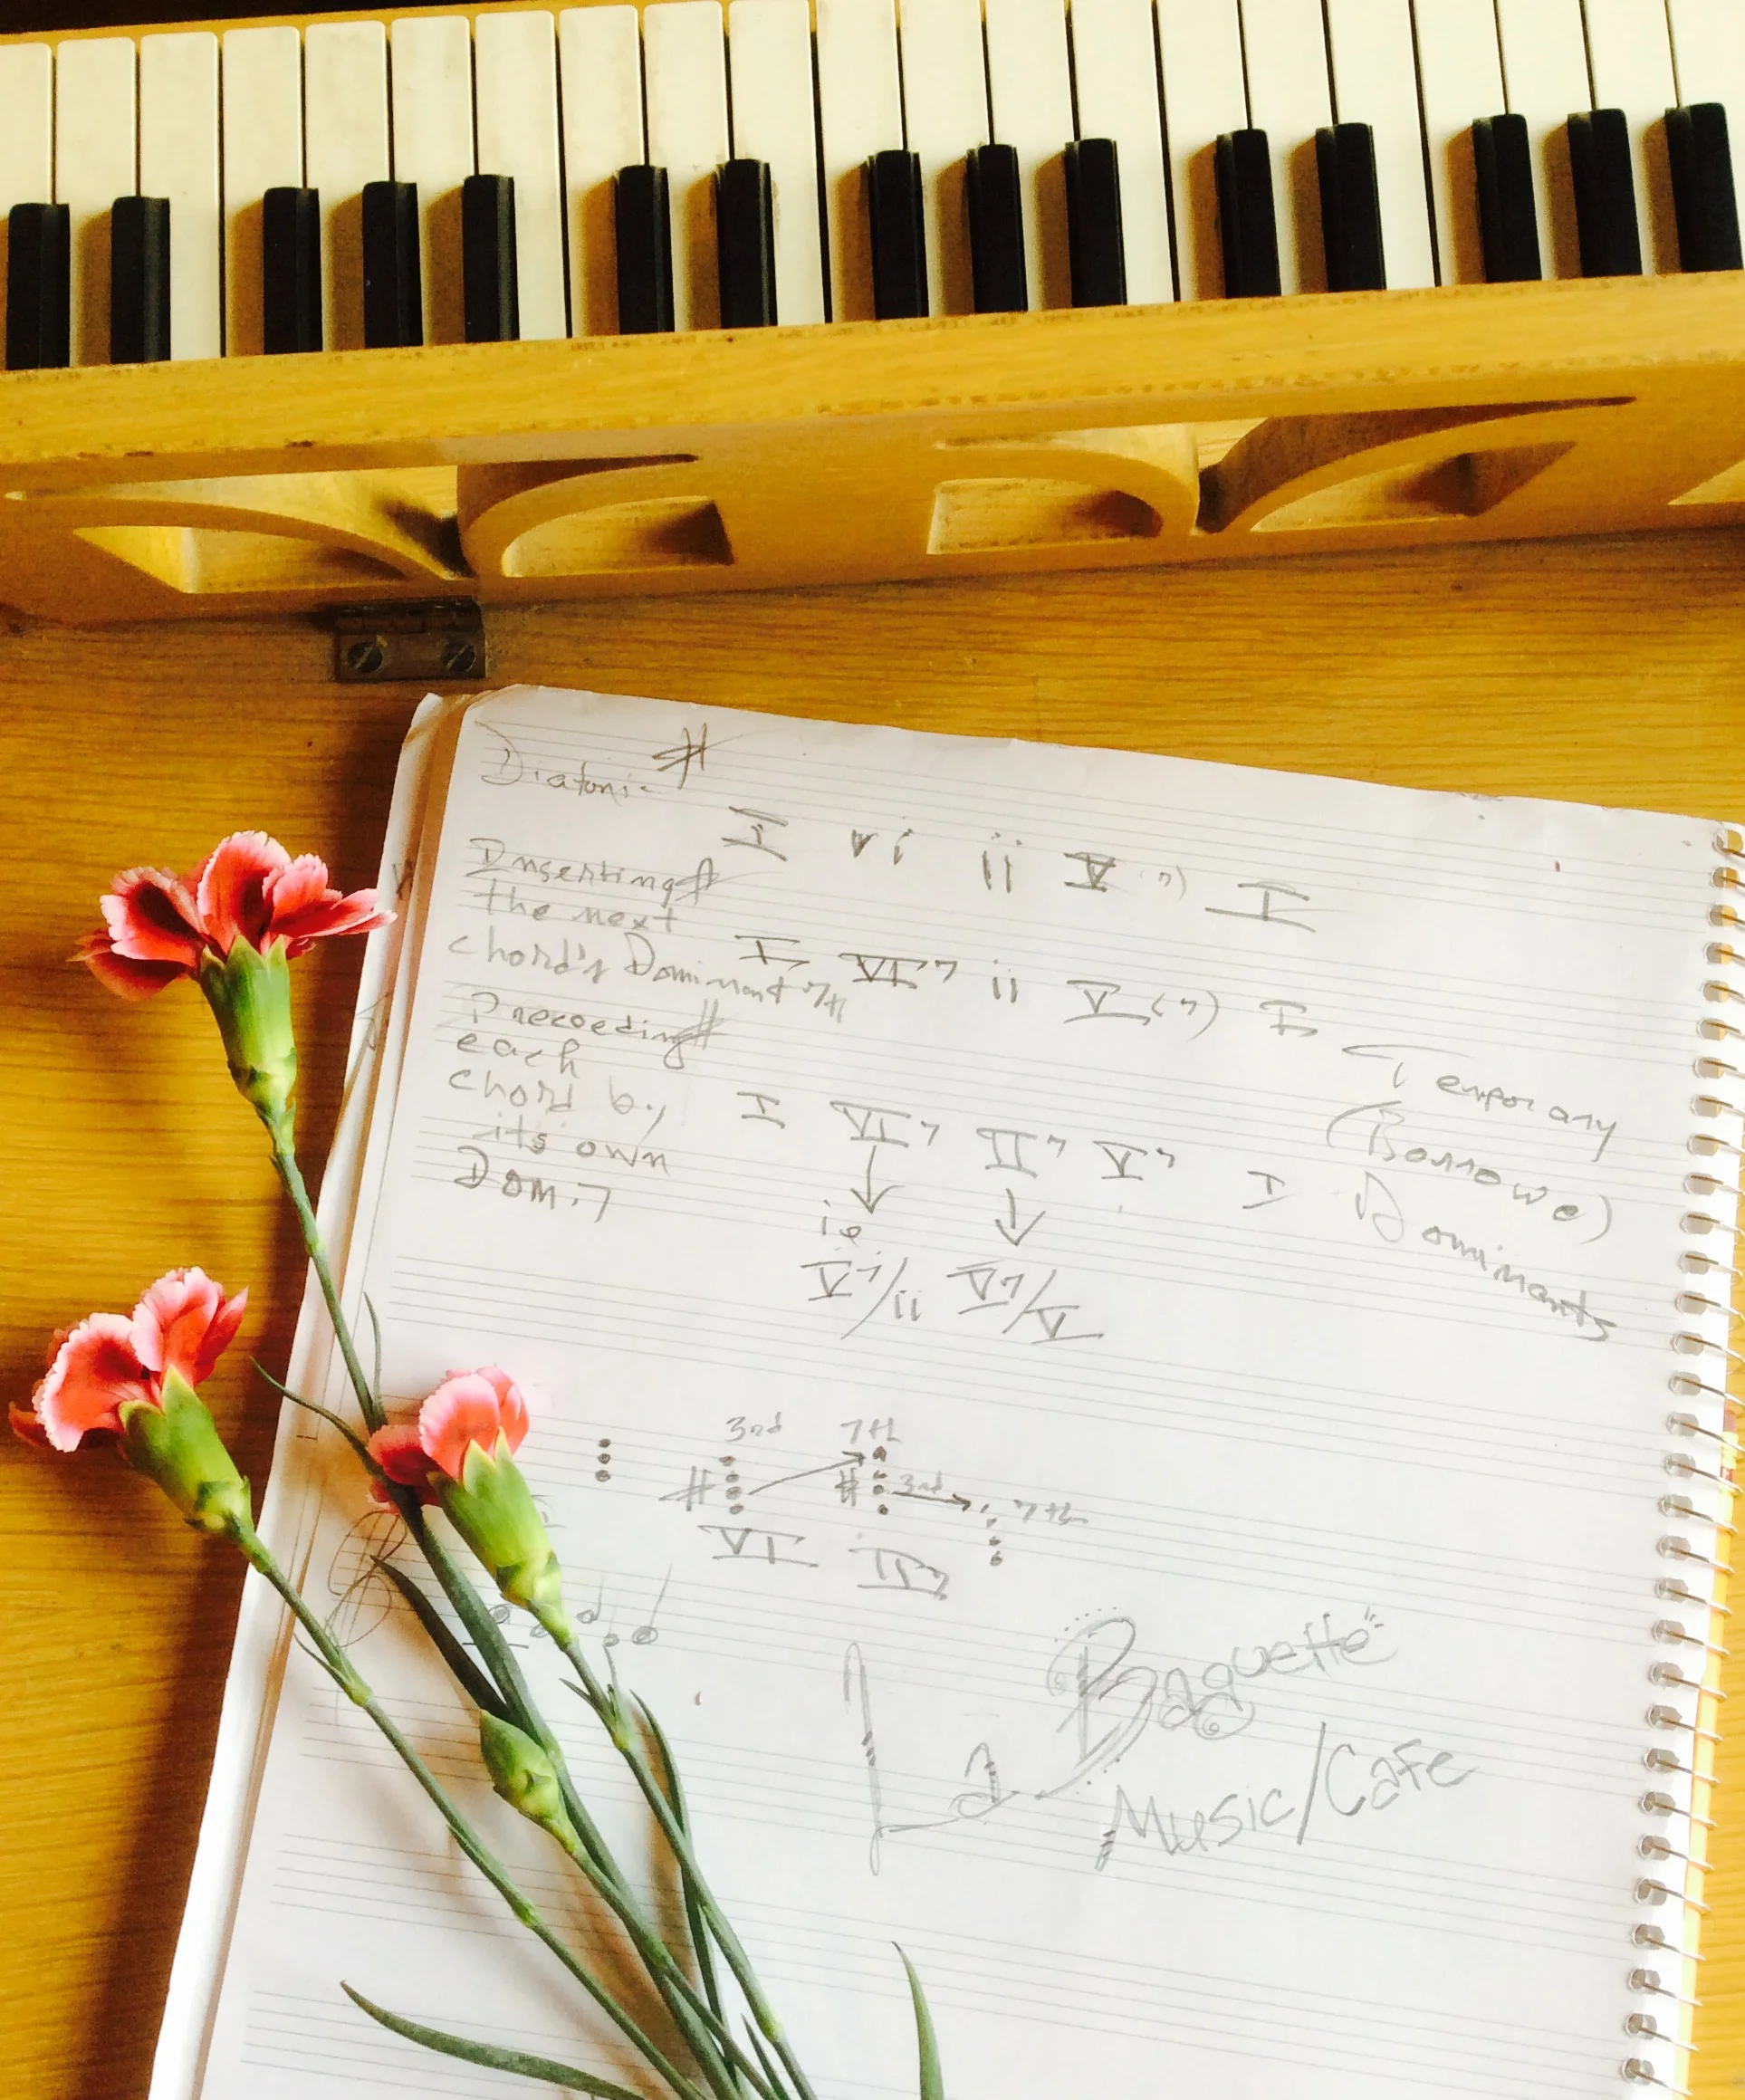 Diatoni-
I vi ii V(7) I
Inserting
the next
chord's Dominant 7th
I VI7 ii V(7) I
Preceeding
each
chord by
its own
Dom.7
I VI7 II7 V7 I
ie
V7/ii V7/V
Temporary
(Borrowe)
Dominants
3rd 7th
# # 3rd 7th
VI II7
La Baguette
Music/Cafe